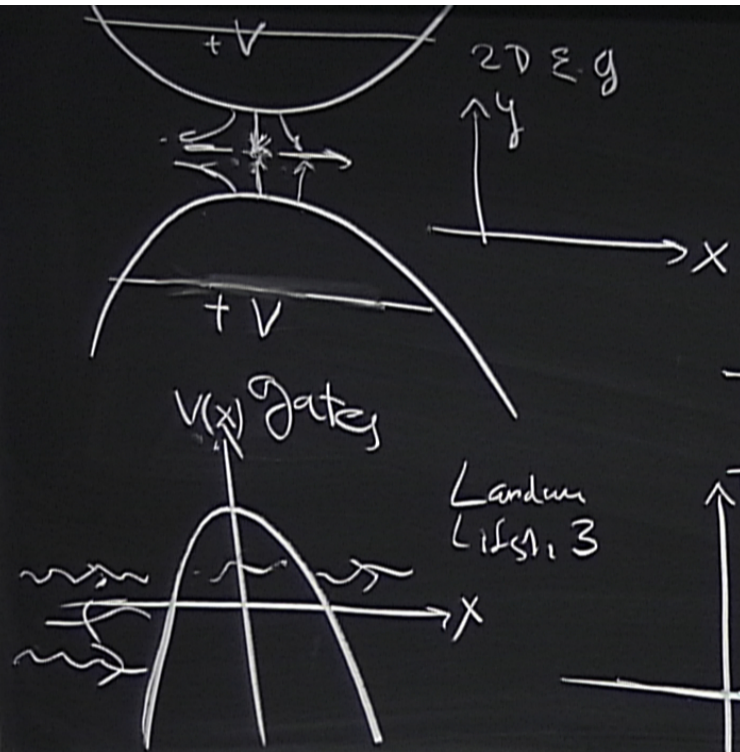 + V
2D E g
y
x
+ V
V(x) gates
Landau
Lifsh. 3
x